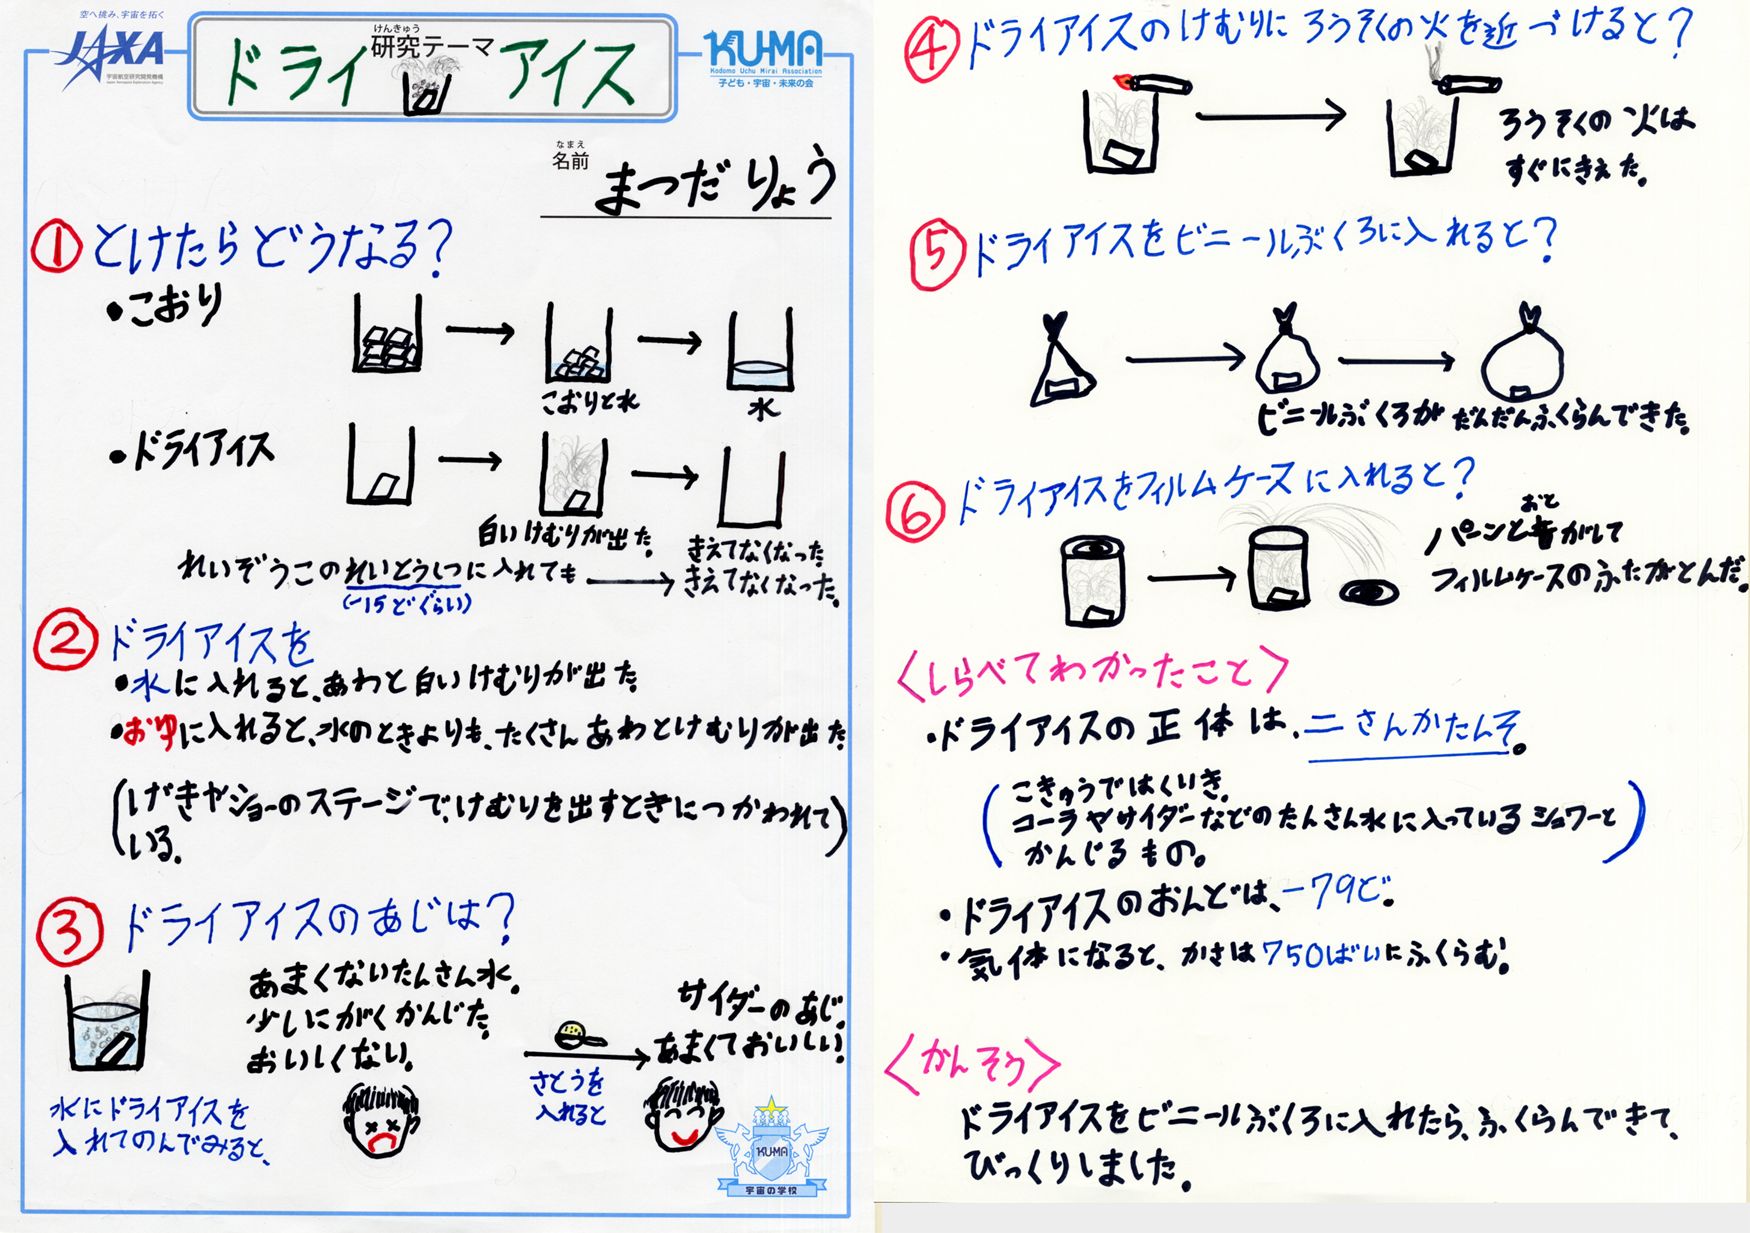 空へ挑み、宇宙を拓く
JAXA
宇宙航空研究開発機構
Japan Aerospace Exploration Agency
けんきゅう
研究テーマ
ドライアイス
KU-MA
Kodomo Uchu Mirai Association
子ども・宇宙・未来の会
なまえ
名前
まつだ りょう
① とけたらどうなる?
・こおり
こおりと水
水
・ドライアイス
白いけむりが出た。
きえてなくなった
れいぞうこのれいとうしつに入れても
きえてなくなった。
(-15どぐらい)
② ドライアイスを
・水に入れると、あわと白いけむりが出た。
・おゆに入れると、水のときよりも、たくさんあわとけむりが出た。
(げきやショーのステージで、けむりを出すときにつかわれて
いる。)
③ ドライアイスのあじは?
あまくないたんさん水。
少しにがくかんじた。
おいしくない。
サイダーのあじ。
あまくておいしい!
さとうを
入れると
水にドライアイスを
入れてのんでみると、
KU-MA
宇宙の学校
④ ドライアイスのけむりにろうそくの火を近づけると?
ろうそくの火は
すぐにきえた。
⑤ ドライアイスをビニールぶくろに入れると?
ビニールぶくろがだんだんふくらんできた。
⑥ ドライアイスをフィルムケースに入れると?
おと
パーンと音がして
フィルムケースのふたがとんだ。
〈しらべてわかったこと〉
・ドライアイスの正体は、二さんかたんそ。
(こきゅうではくいき。
コーラやサイダーなどのたんさん水に入っているシュワーと
かんじるもの。)
・ドライアイスのおんどは、-79ど。
・気体になると、かさは750ばいにふくらむ!
〈かんそう〉
ドライアイスをビニールぶくろに入れたら、ふくらんできて、
びっくりしました。